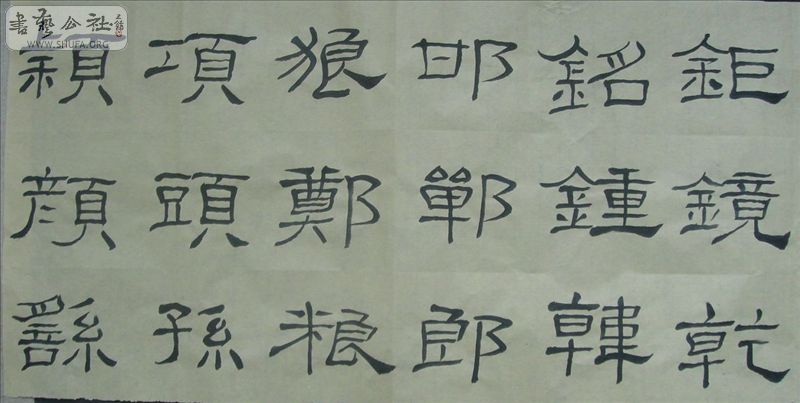 書藝公社
WWW.SHUFA.ORG
鉅鏡乾
銘鍾韓
邯鄲郎
狼鄭粮
項頭孫
顔